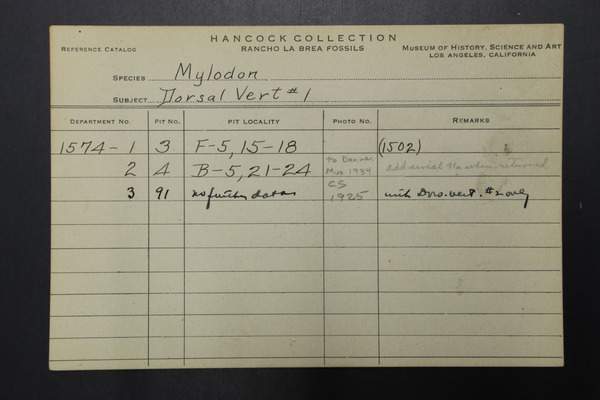 HANCOCK COLLECTION
REFERENCE CATALOG RANCHO LA BREA FOSSILS MUSEUM OF HISTORY, SCIENCE AND ART
LOS ANGELES, CALIFORNIA
SPECIES Mylodon
SUBJECT Dorsal Vert #1
DEPARTMENT NO. PIT NO. PIT LOCALITY PHOTO NO. REMARKS
1574-1 3 F-5, 15-18 (1502)
2 4 B-5, 21-24 to Denver Mus 1934 add serial No. when returned
3 91 no further data CS 1925 with Dors. vert. #2 only